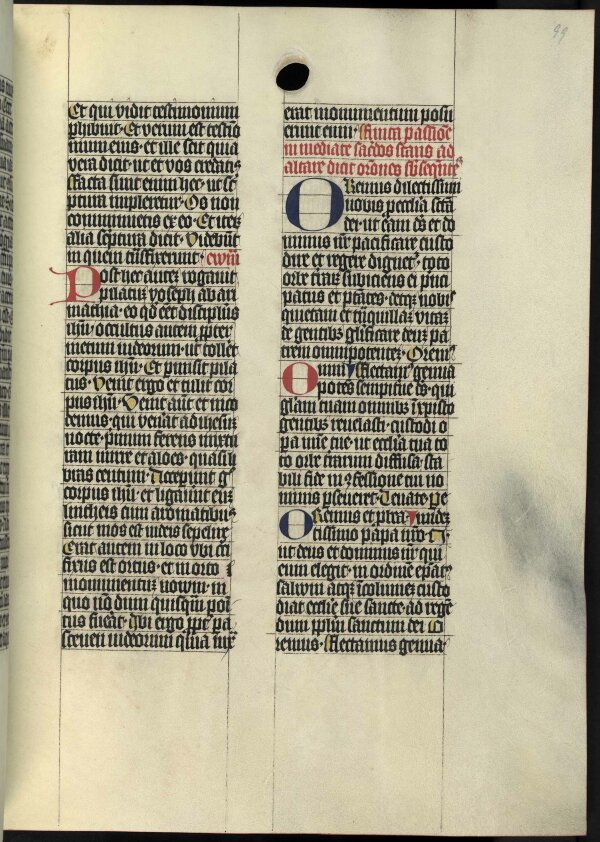 99
Et qui vidit testimonium
phibuit · Et verum est testio
nium eius · et ille scit quia
vera dicit · ut et vos credatis
ffacta sunt enim hec · ut sc
ptura impleretur · Os non
comminuetis ex eo · Et iteꝝ
alia scptura dicit · Videbūt
in quem cūsfixerunt · ewm̄
Post hec autem rogavit
pilatus yoseph ab ari
mathia · eo qd eēt discipulus
ihu · occultus autem ppter
metum iudeorum · ut tollēt
corpus ihu · Et pmisit pila
tus · Venit ergo et tulit cor
pus ihu · Venit aūt et nico
demus · qui venat ad ihesū
nocte · pmum ferens mixtu
ram mirre et aloes · quasi li
bras centum · Acceperunt gͦ
corpus ihu · et ligaverunt eū
lintheis cum aromatibus
sicut mos est iudeis sepelire
Erat autem in loco vbi cru
fixus est ortus · et in orto
monumentum novum · in
quo nōdum quisqm posi
tus fuerat · Ibi ergo ppt pa
sceuen iudeorum quia iux
erat monumentum posu
erunt eum · ffinita passione
in mediate sacdos stans ad
altare dicit orōnes subseqntes
Oremus dilectissimi
nobis · p ecclia sctā
dei · ut eam ds et do
minus nr pacificare custo
dire et regere dignet · toto
orbe traꝝ · subiciens ei pnci
patus et ptātes · detqꝫ nobis
quietam et tnquillam vitam
degentibus · glificare deum pa
trem omnipotentem · Oremus
Omni fflectamus genua
potens sempitne ds · qui
gliam tuam omnibus in xpisto
gentibus revelasti · custodi o
pa mie tue · ut ecclia tua to
to orbe trarum diffusa · sta
bili fide in cfessione tui no
minis pseveret · Levate · Pe
Oremus et p bea
tissimo papa nrō · N ·
ut deus et dominus nr qui
eum elegit · in ordine epātꝰ
salvum atqꝫ īcolumem custo
diat ecclie sue sancte · ad rege
dum pplm sanctum dei · O
remus · fflectamus genua ·